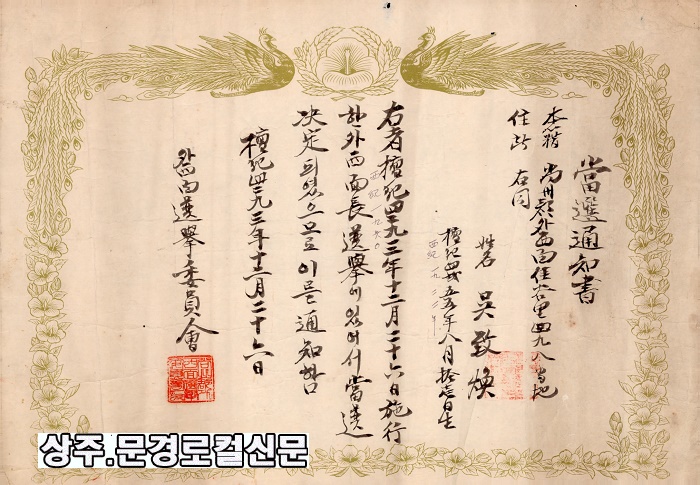 當選通知書
本籍 尙州郡外西面佳谷里四九八番地
住所 右同
姓名 吳致煥
檀紀四二五五年八月拾壹日生
西紀一九二二年
右者檀紀四二九三年十二月二十六日施行
西紀 一九六〇
한外西面長選擧에있어서當選
決定되었으므로이를通知함
檀紀四二九三年十二月二十六日
外西面選擧委員會
상주.문경로컬신문